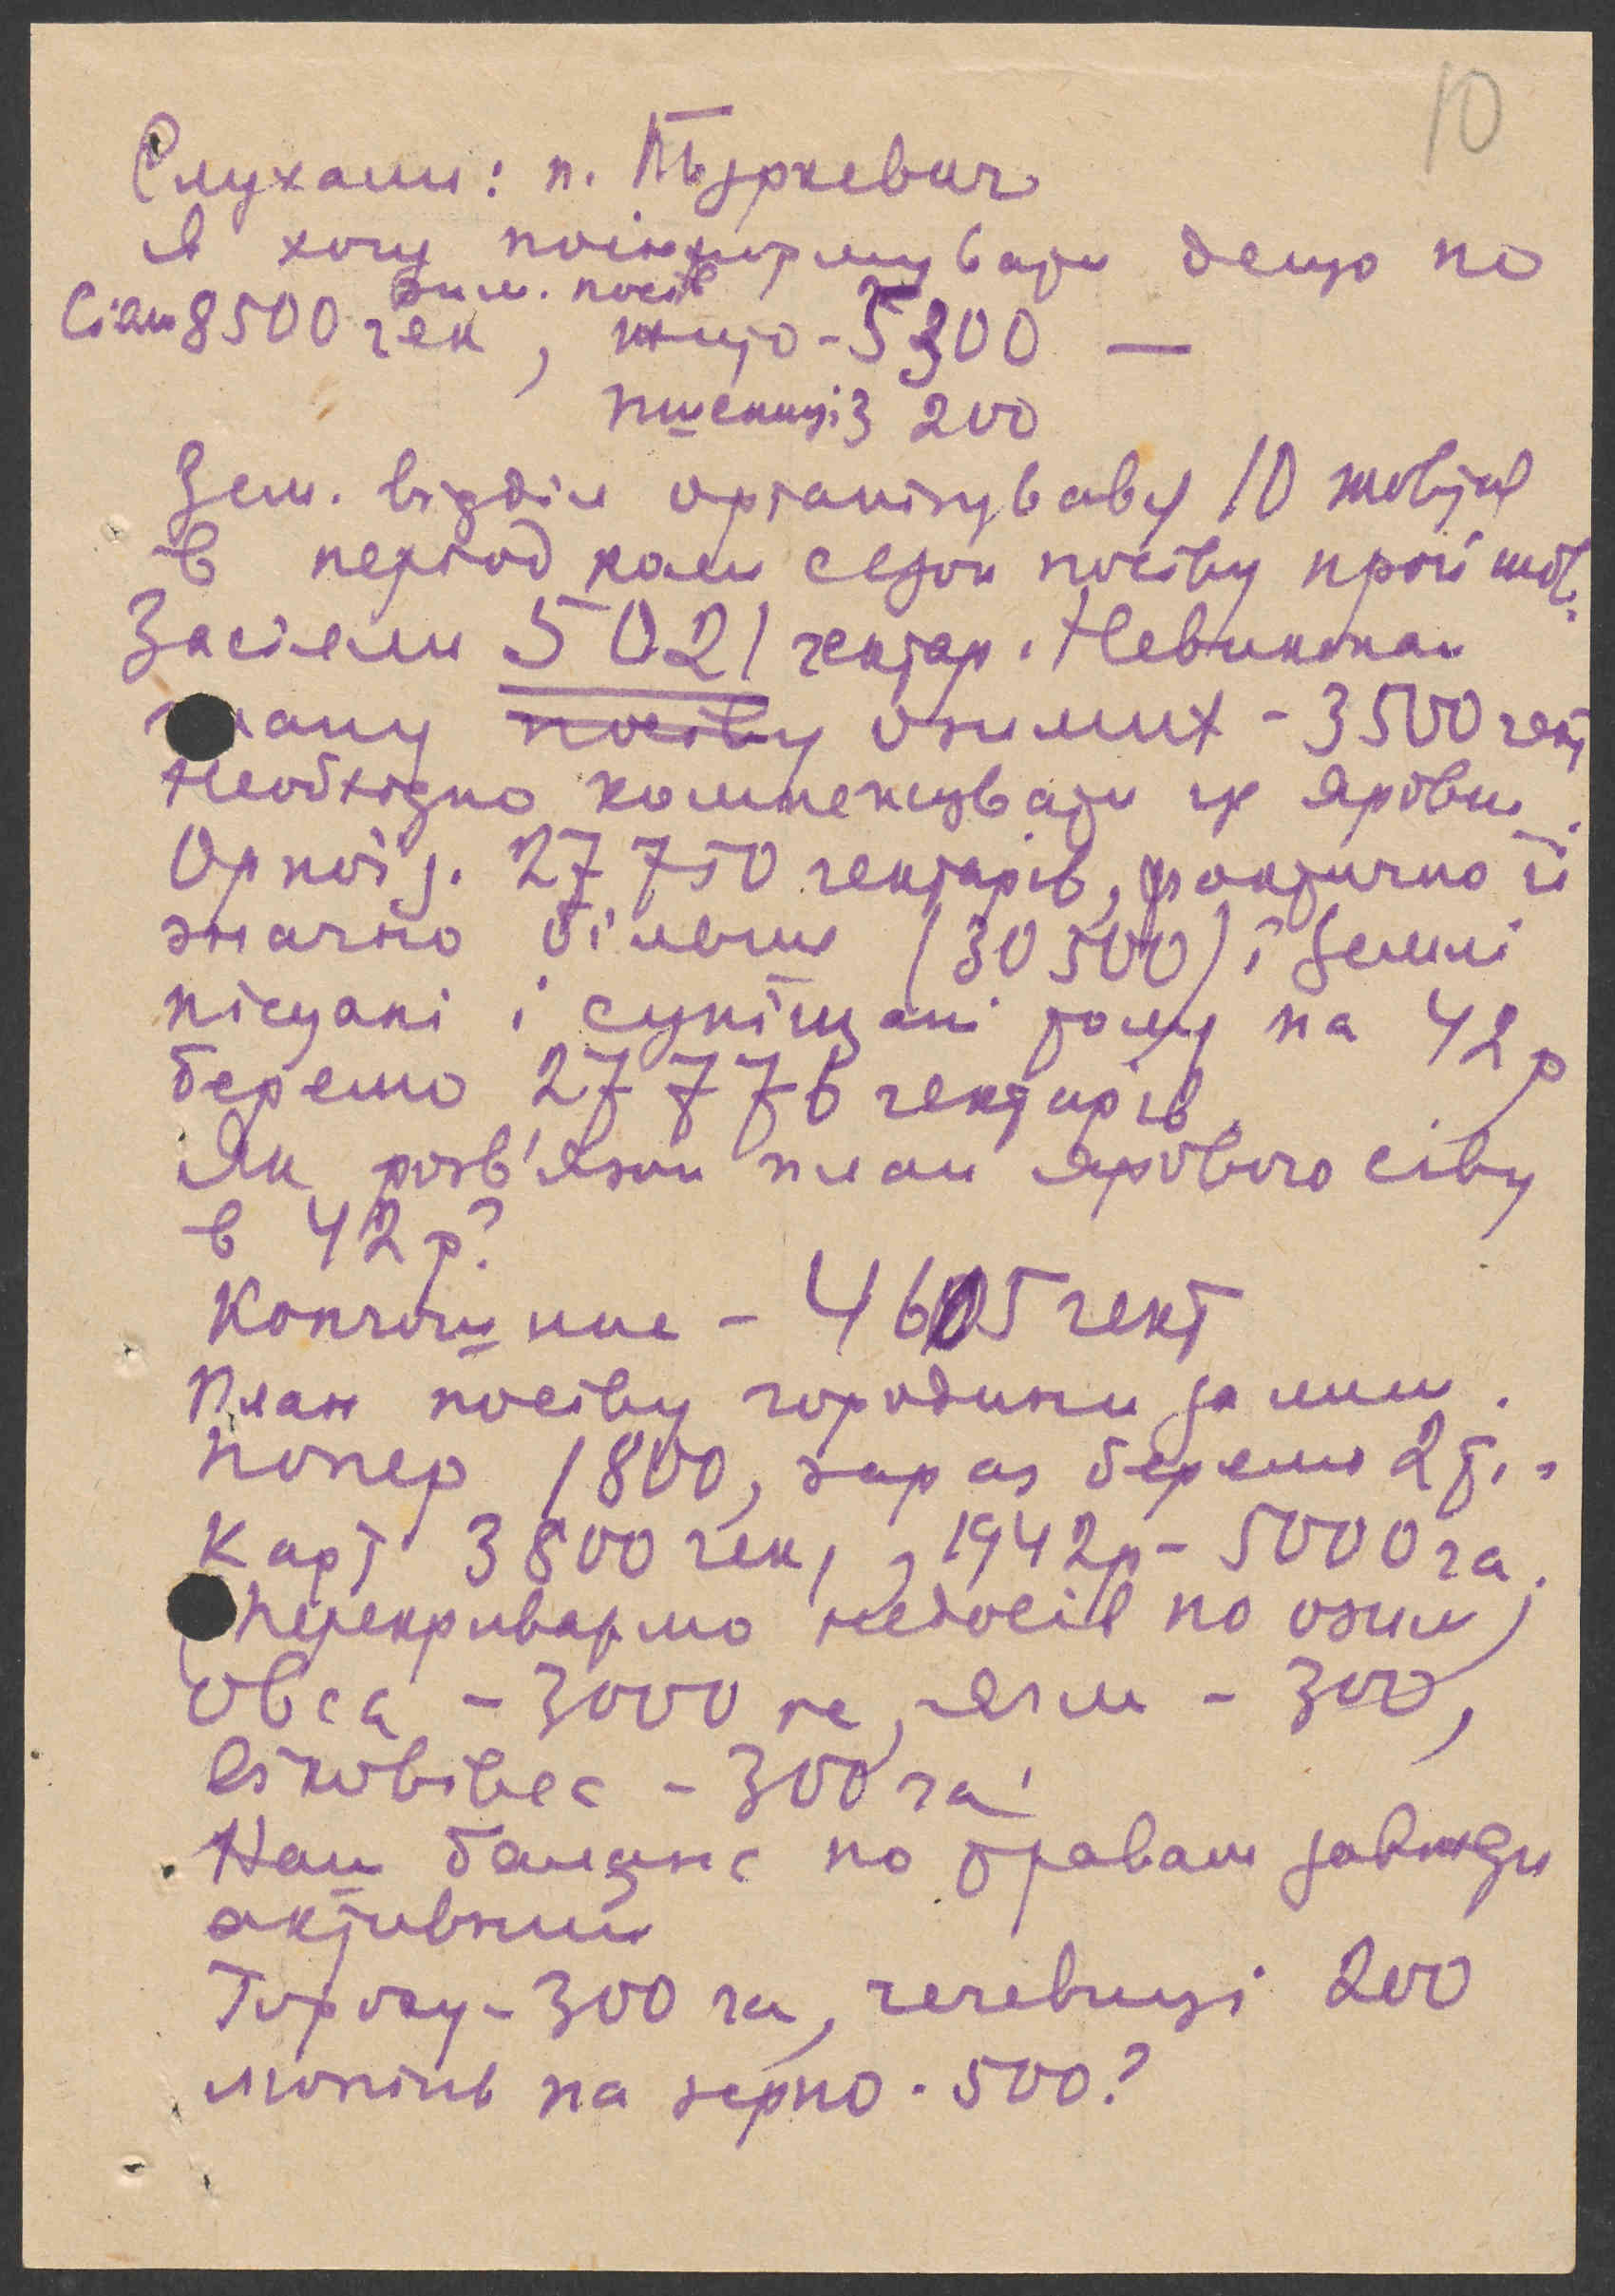 10
Слухали: п. Тьуркевич
Я хочу поінформувати дещо по
озим. посів
Сіян 8500 гек, жито - 5300 —
пшениці 3200
Зем. відділ організувався 10 жовтня
в період коли сезон посіву пройшов.
Засіяли 5021 гектар. Невиконан
плану посіву озимих - 3500 гект
Необхідно компенсувати їх яровим.
Орної з. 27750 гектарів, фактично її
значно більше (30500) і землі
пісчані і супіщані тому на 42 р
беремо 27776 гектарів.
Як розв'язан план ярового сіву
в 42 р?
Конюшине - 4605 гект
План посіву городини залиш.
Попер 1800, зараз беремо 2 т..
Карт 3800 гек, , 1942р - 5000 га.
(Перекриватмо недосів по озим)
Овса - 3000 га, ячм - 300,
віковівес - 300 га.
Наш баланс по травам завжди
активний
Гороху - 300 га, чечевиці 200
люпінь на зерно - 500?